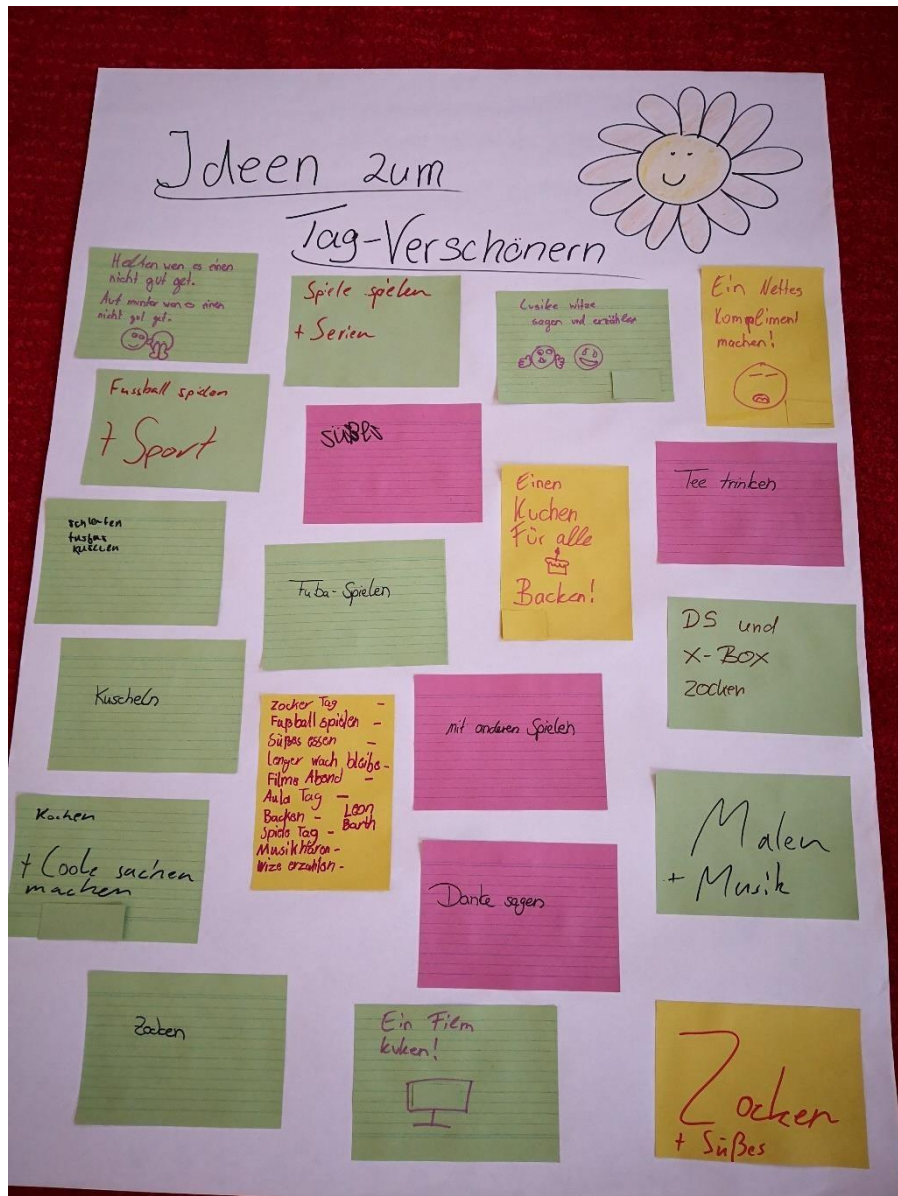 Ideen zum
Tag-Verschönern
Helfen wen es einen
nicht gut get.
Auf munter wen es einen
nicht gut get.
Spiele spielen
+ Serien
Lusike witze
sagen und erzählen
Ein Nettes
Kompliment
machen!
Fussball spielen
+ Sport
süßes
Einen
Kuchen
Für alle
Backen!
Tee trinken
schlafen
kuscheln
Fuba-Spielen
DS und
X-BOX
zocken
Kuscheln
Zocker Tag -
Fußball spielen -
Süßes essen -
Lenger wach bleibe -
Films Abend -
Aula Tag -
Backen -
Spiele Tag -
Musikhören -
Wize erzählen -
Leon
Barth
mit anderen Spielen
Kochen
+ Coole sachen
machen
Malen
+ Musik
Danke sagen
Zocken
Ein Film
kuken!
Zocken
+ Süßes